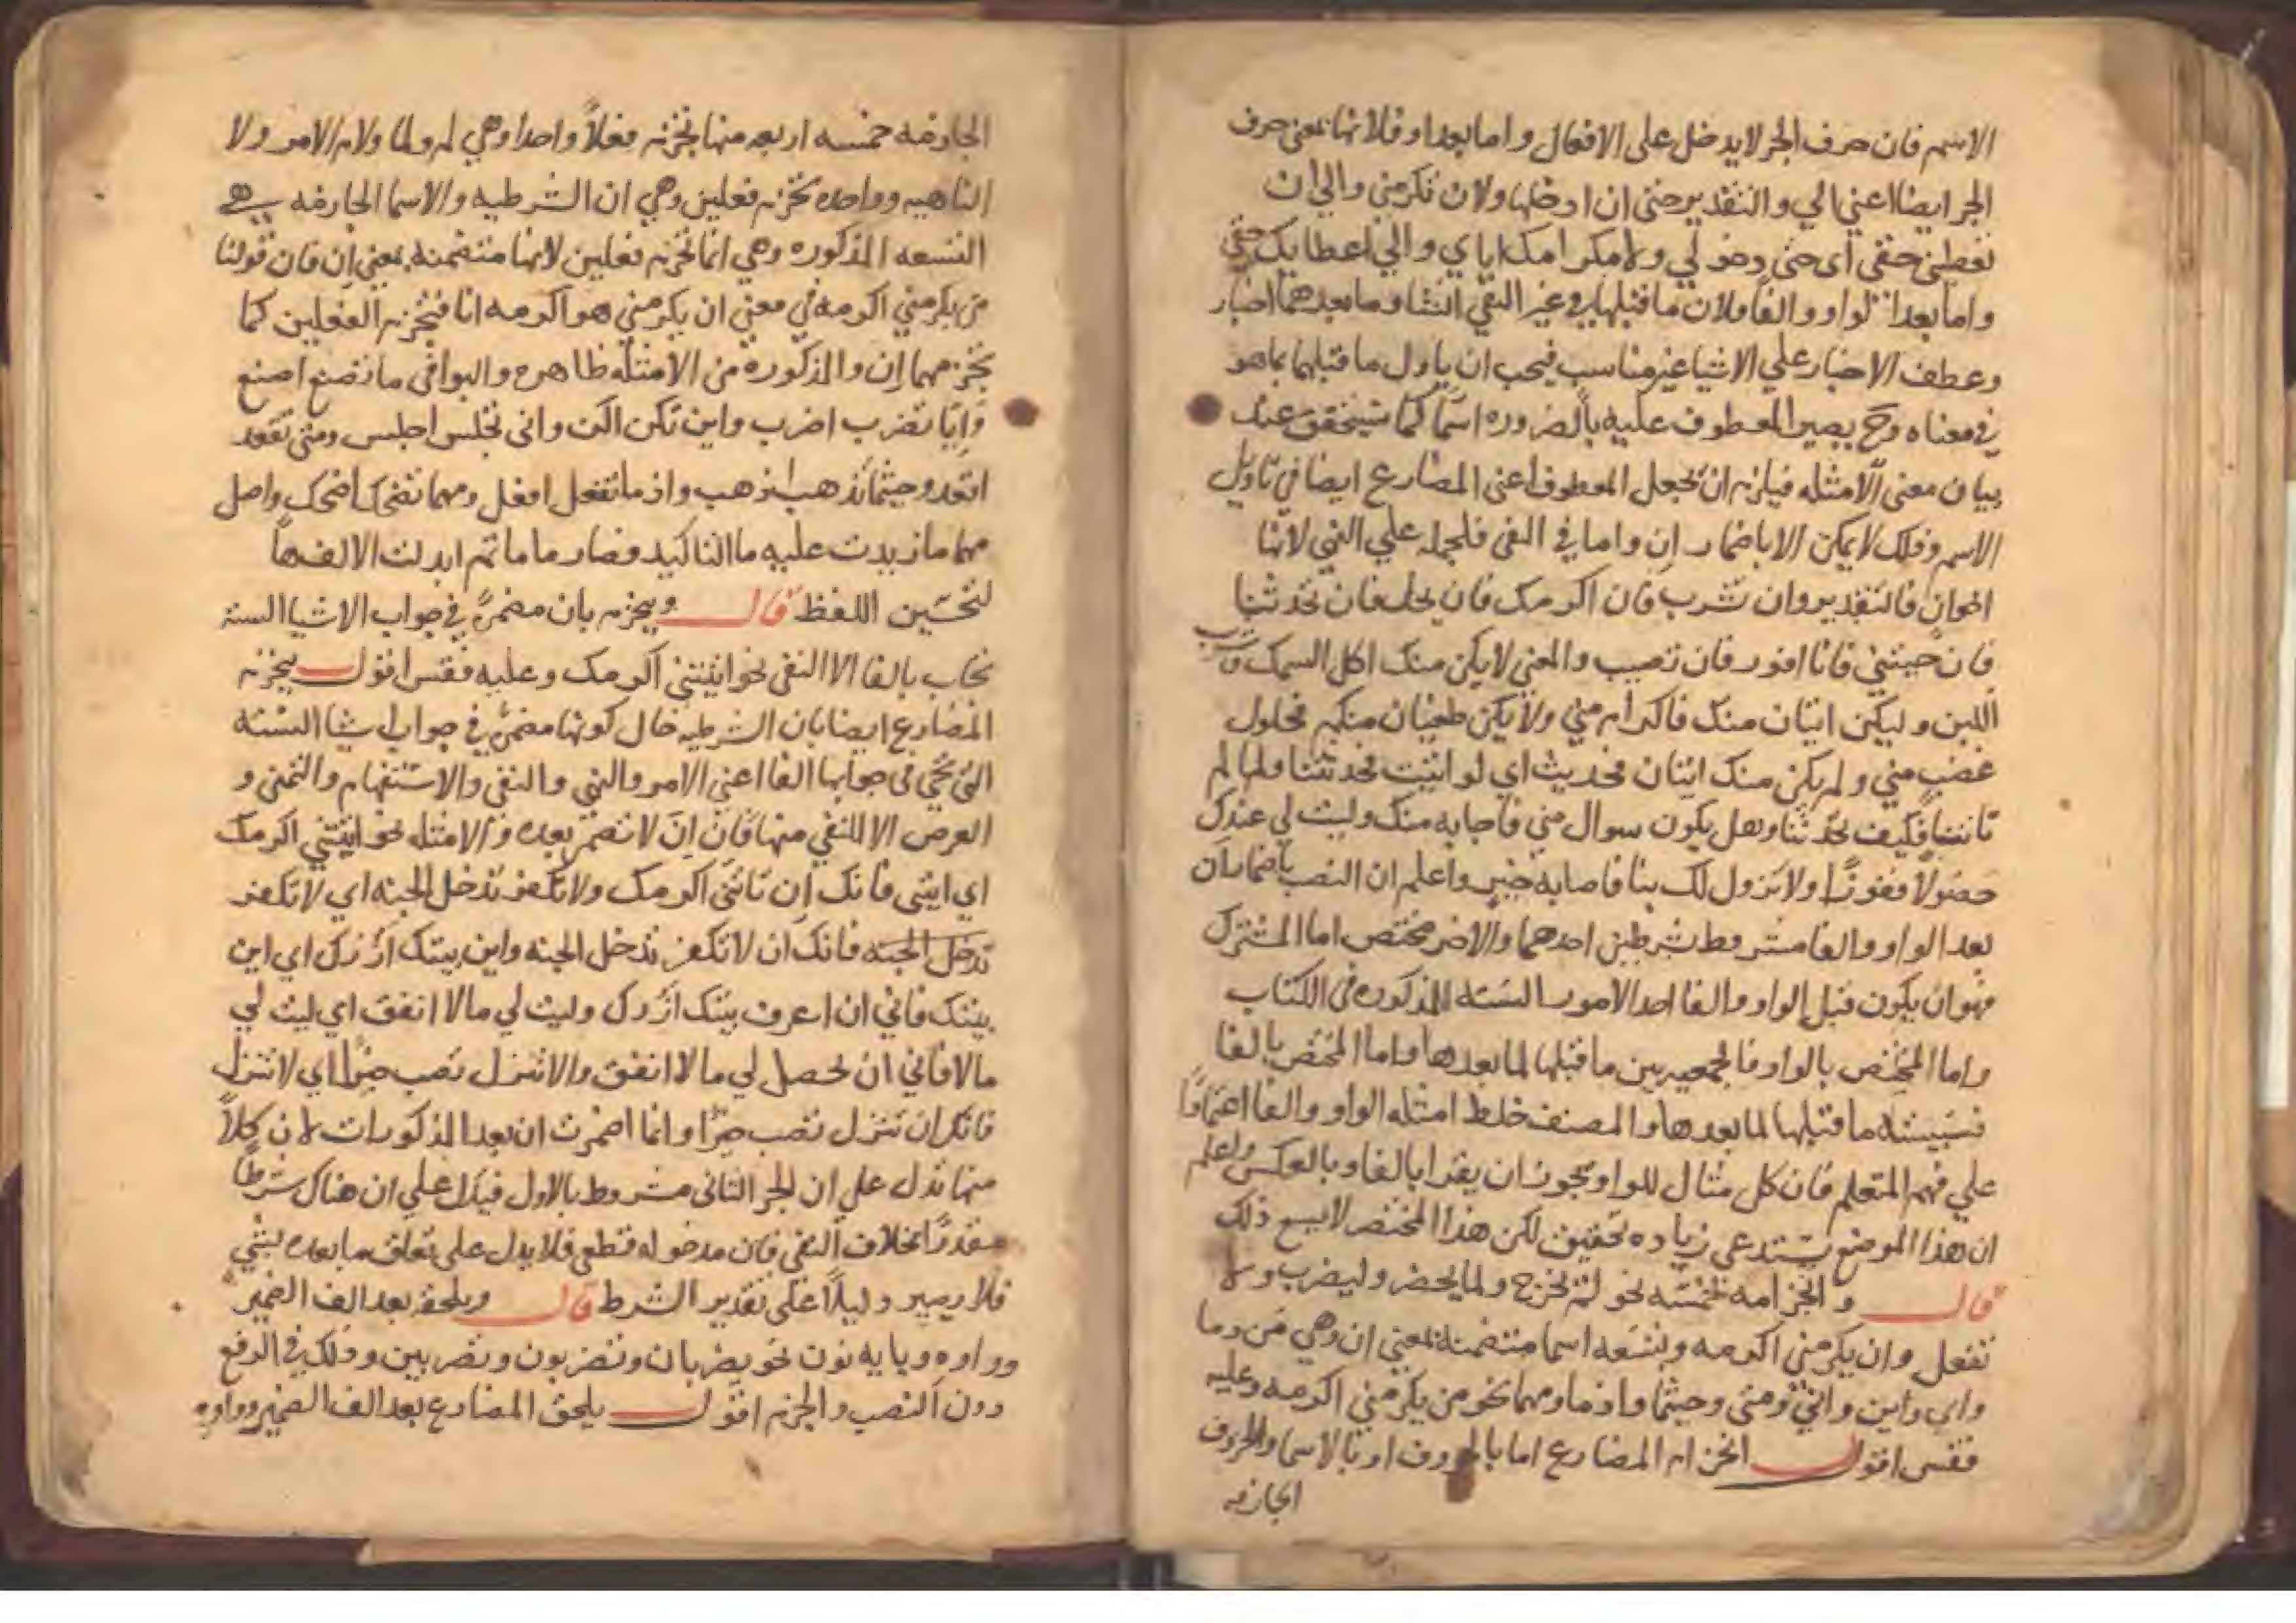 الاسم فان حرف الجر لا يدخل على الافعال واما بعد او فلانها بمعنى حرف
الجر ايضا اعني الي والتقدير حتى ان ادخلها ولان تكرمني والي ان
تعطيني حقي اى حتى دخولي ولاجل اكرامك اياي والي اعطايك حقي
واما بعد الواو والفا فلان ما قبلها في غير النفي انشا وما بعدهما اخبار
وعطف الاخبار علي الانشا غير مناسب فيجب ان ياول ما قبلهما بما هو
في معناه وح يصير المعطوف عليه بالضروره اسما كما ستحقق عند
بيان معنى الامثله فيلزم ان يجعل المعطوف اعنى المضارع ايضا في تاويل
الاسم وذلك لا يمكن الا باضمار ان واما في النفى فلحمله علي النهي لانها
اخوان فالتقدير وان تشرب فان اكرمك فان يحل فان تحدثنا
فان جيتني فانا افوز فان تصيب والمعني لا يكن منك اكل السمك وشرب
اللبن وليكن اتيان منك فاكرام مني ولا يكن طغيان منكم فحلول
غضب مني ولم يكن منك اتيان فحديث اي لو اتيت لحدثتنا ولما لم
تاتنا فكيف تحدثنا وهل يكون سوال مني فاجابه منك وليت لي عندك
حصولا ففوزا ولا نزول لك بنا فاصابه خير واعلم ان النصب باضمار ان
بعد الواو والفا مشروط بشرطين احدهما والاخر مختص اما المشترك
فهو ان يكون قبل الواو والفا احد الامور السته المذكوره في الكتاب
واما المختص بالواو فالجمعيه بين ما قبلها لما بعدها واما المختص بالفا
فسببيته ما قبلها لما بعدها والمصنف خلط امثله الواو والفا اعتمادا
علي فهم المتعلم فان كل مثال للواو يجوز ان يقرا بالفا وبالعكس واعلم
ان هذا الموضع يستدعى زياده تحقيق لكن هذا المختصر لا يسع ذلك
قال وانجزامه بخمسه نحو لم يخرج ولما يحضر وليضرب ولا
تفعل وان يكرمني اكرمه وبتسعه اسما متضمنة بمعنى ان وهي من وما
واي واين واني ومتى وحيثما واذما ومهما نحو من يكرمني اكرمه وعليه
فقس اقول انجزام المضارع اما بالحروف او بالاسما والحروف
الجازمه
الجازمه خمسه اربعه منها تجزم فعلا واحدا وهي لم ولما ولام الامر ولا
الناهيه وواحده تجزم فعلين وهي ان الشرطيه والاسما الجازمه هي
التسعه المذكوره وهي انما تجزم فعلين لانها متضمنه بمعني ان فان قولنا
من يكرمني اكرمه في معني ان يكرمني هو اكرمه انا فتجزم الفعلين كما
تجزمهما ان والمذكوره من الامثله ظاهره والبواقى ما تصنع اصنع
وايا تضرب اضرب واين تكن اكن واني تجلس اجلس ومتى تقعد
اقعد وحيثما تذهب اذهب واذ ما تفعل افعل ومهما تضحك اضحك واصل
مهما ما زيدت عليه ما التاكيد فصار ماما ثم ابدلت الالف ها
لتحسين اللفظ قال ويجزم بان مضمرة في جواب الاشيا الستة
تجاب بالفا الا النفى نحو ايتني اكرمك وعليه فقس اقول يجزم
المضارع ايضا بان الشرطيه حال كونها مضمرة في جواب اشيا السته
التى تجي في جوابها الفا اعني الامر والنهي والنفي والاستفهام والتمني و
العرض الا المنفي منها فان ان لا تضمر بعده والامثله نحو ايتني اكرمك
اي ايتني فانك ان تاتنى اكرمك ولا تكفر تدخل الجنه اي لا تكفر
تدخل الجنه فانك ان لا تكفر تدخل الجنه واين بيتك ازرك اي اين
بيتك فاني ان اعرف بيتك ازرك وليت لي مالا انفق اي ليت لي
مالا فاني ان يحصل لي مالا انفق والا تنزل تصب خيرا اي لا تنزل
فانك ان تنزل تصب خيرا وانما اضمرت ان بعد المذكورات لان كلا
منها تدل علي ان الجز الثانى مشروط بالاول فيدل علي ان هناك شرطا
مقدرا بخلاف النفي فان مدخوله قطعي فلا يدل على تعلق ما بعده بشي
فلا يصير دليلا على تقدير الشرط قال ويلحقه بعد الف الضمير
وواوه ويايه نون نحو يضربان وتضربون وتضربين وذلك في الرفع
دون النصب والجزم اقول يلحق المضارع بعد الف الضمير وواوه